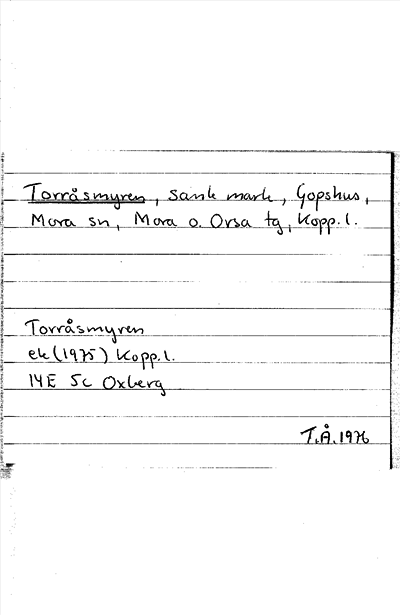 Torråsmyren, sank mark, Gopshus,
Mora sn, Mora o. Orsa tg, Kopp. l.
Torråsmyren
ek (1975) Kopp. l.
14E 5c Oxberg
T.Å. 1976